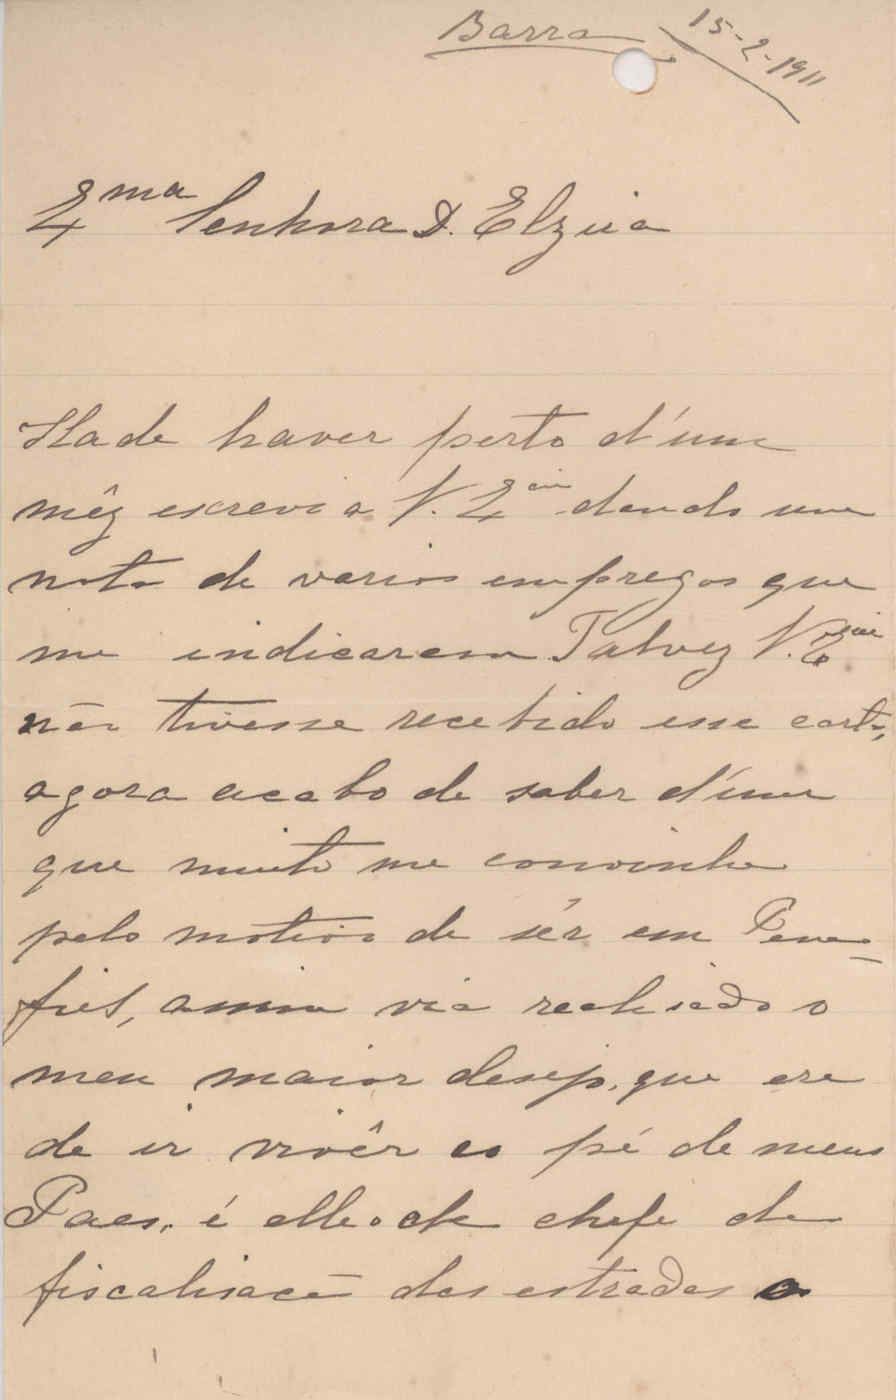 Barra 15-2-1911
Ema Senhora D. Elzira
Hade haver perto d'um
mêz escrevi a V. Ecia dando uma
nota de varios empregos que
me indicaram Talvez V. Ecia
não tivesse recebido essa carta,
agora acabo de saber d'um
que muito me convinha
pelo motivo de sêr em Pena-
fiel, assim via realisado o
meu maior desejo, que era
de ir vivêr ao pé de meus
Paes, é elle o de chefe de
fiscalisacão das estradas